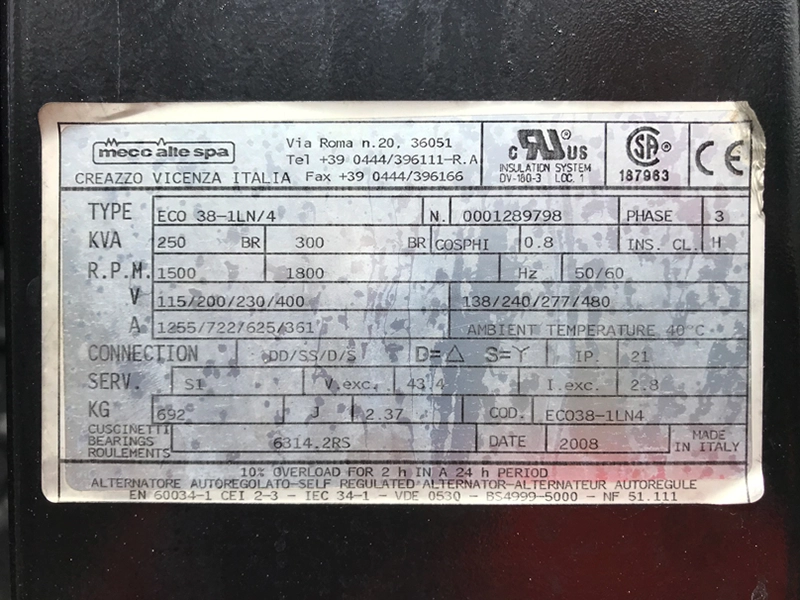 mecc alte spa
CREAZZO VICENZA ITALIA
Via Roma n.20, 36051
Tel +39 0444/396111-R.A
Fax +39 0444/396166
c RU ® US
INSULATION SYSTEM
DV-180-3 LOC. 1
SA ®
187963
CE
TYPE ECO 38-1LN/4 N. 0001289798 PHASE 3
KVA 250 BR 300 BR COSPHI 0.8 INS. CL. H
R.P.M. 1500 1800 Hz 50/60
V 115/200/230/400 138/240/277/480
A 1255/722/625/361 AMBIENT TEMPERATURE 40°C
CONNECTION DD/SS/D/S D=△ S=Y IP. 21
SERV. S1 V.exc. 43.4 I.exc. 2.8
KG 692 J 2.37 COD. ECO38-1LN4
CUSCINETTI
BEARINGS
ROULEMENTS
6314.2RS DATE 2008
MADE
IN ITALY
10% OVERLOAD FOR 2 h IN A 24 h PERIOD
ALTERNATORE AUTOREGOLATO-SELF REGULATED ALTERNATOR-ALTERNATEUR AUTOREGULE
EN 60034-1 CEI 2-3 - IEC 34-1 - VDE 0530 - BS4999-5000 - NF 51.111